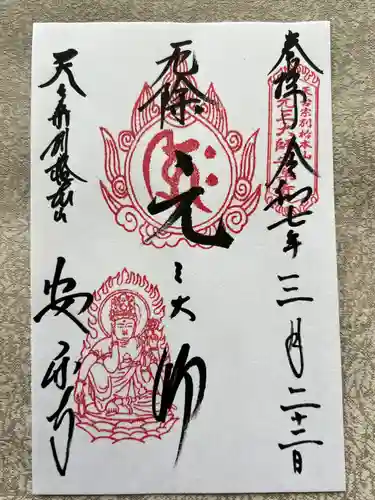 奉拝 令和七年三月二十二日
厄除 元三大師
天台宗別格本山
安楽寺
天台宗別格本山
元三大師